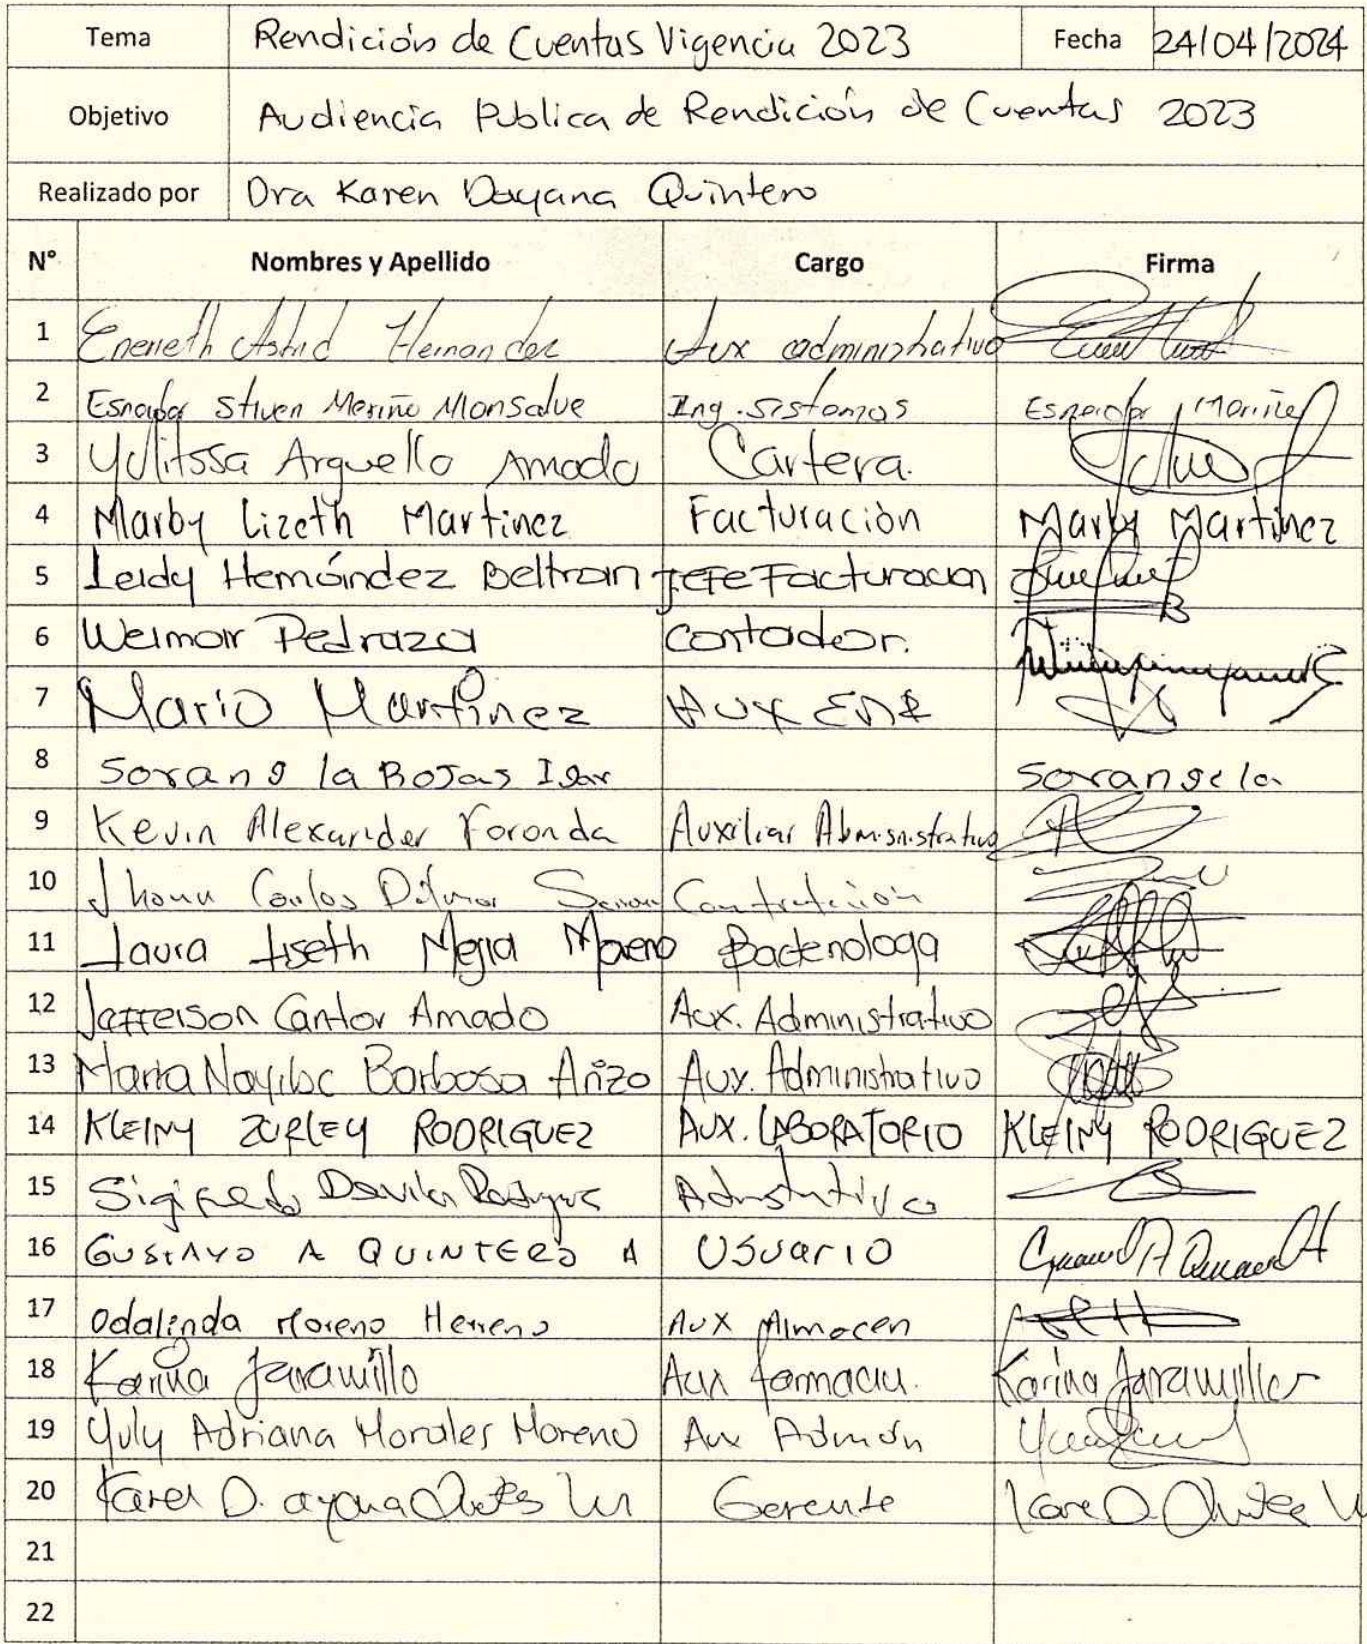 Tema Rendición de Cuentas Vigencia 2023 Fecha 24/04/2024
Objetivo Audiencia Publica de Rendición de Cuentas 2023
Realizado por Dra Karen Dayana Quintero
N° Nombres y Apellido Cargo Firma
1 Enereth Astrid Hernandez Aux administrativo
2 Esnaider Stiven Meriño Monsalve Ing. sistemas Esneider Mariñe
3 Yulitssa Arguello Amado Cartera.
4 Marby Lizeth Martinez Facturación Marby Martinez
5 Leidy Hernández Beltran Jefe Facturacion
6 Weimar Pedraza Contador.
7 Mario Martinez Aux
8 Sorang la Rojas Sorangela
9 Kevin Alexander Foronda Auxiliar Abmisnistrativo
10 Jhonn Carlos Contratación
11 Laura Liseth Mejia Moreno Bacteriologa
12 Jefferson Cantor Amado Aux. Administrativo
13 Maria Nayibe Barbosa Arizo Aux. Administrativo
14 KLEINY ZURLEY RODRIGUEZ AUX. LABORATORIO KLEINY RODRIGUEZ
15 Sigifredo Davila
16 GUSTAVO A QUINTERO A USUARIO
17 Odalinda Moreno Herreno Aux Almacen
18 Karina Jaramillo Aux farmacia. Karina Jaramillo
19 Yuly Adriana Morales Moreno Aux Admón
20 Karen D. ayana Gerente
21
22